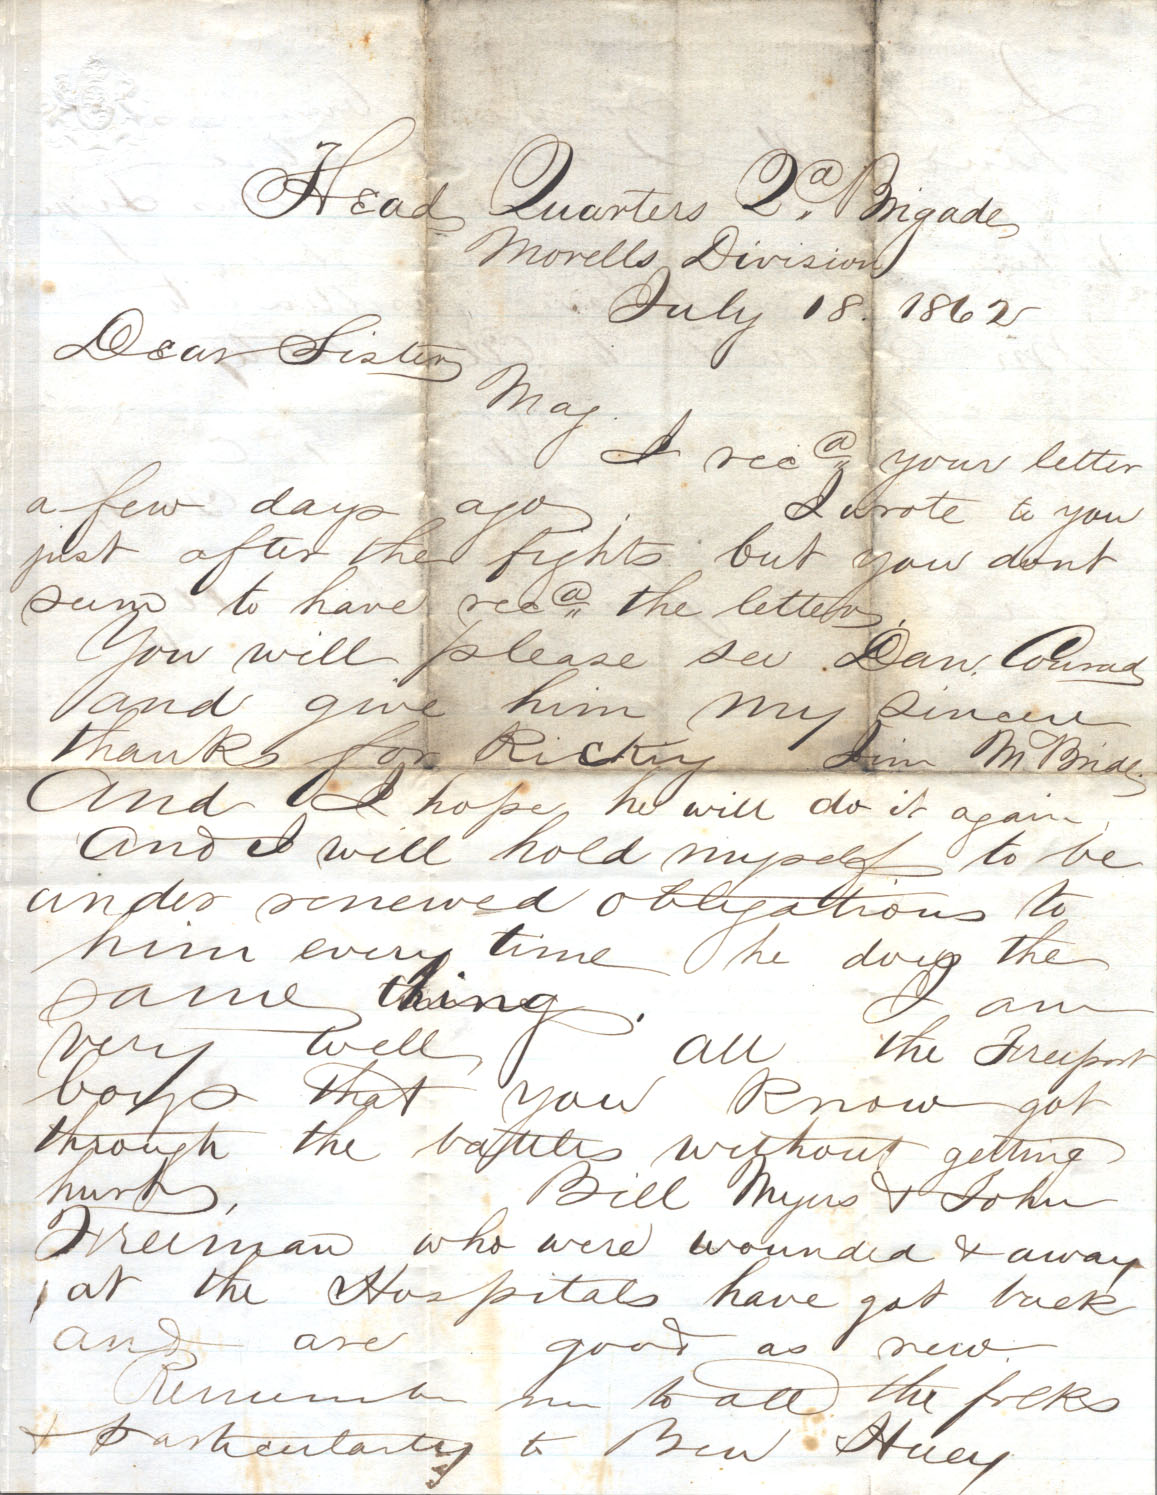 Head Quarters 2d. Brigade
Morells Division
July 18. 1862
Dear Sister
Mag.
I recd your letter
a few days ago. I wrote to you
just after the fights but you dont
seem to have recd the letter.
You will please see Dan. Conrad
and give him my sincere
thanks for Jim McBride
And I hope he will do it again,
And I will hold myself to be
under renewed obligations to
him every time he does the
same thing. I am
very well, all the Freeport
boys that you know got
through the battles without getting
hurt, Bill Myers & John
Freeman who were wounded & away
at the Hospitals have got back
and are good as new.
Remember me to all the folks
& particularly to Ben Huey